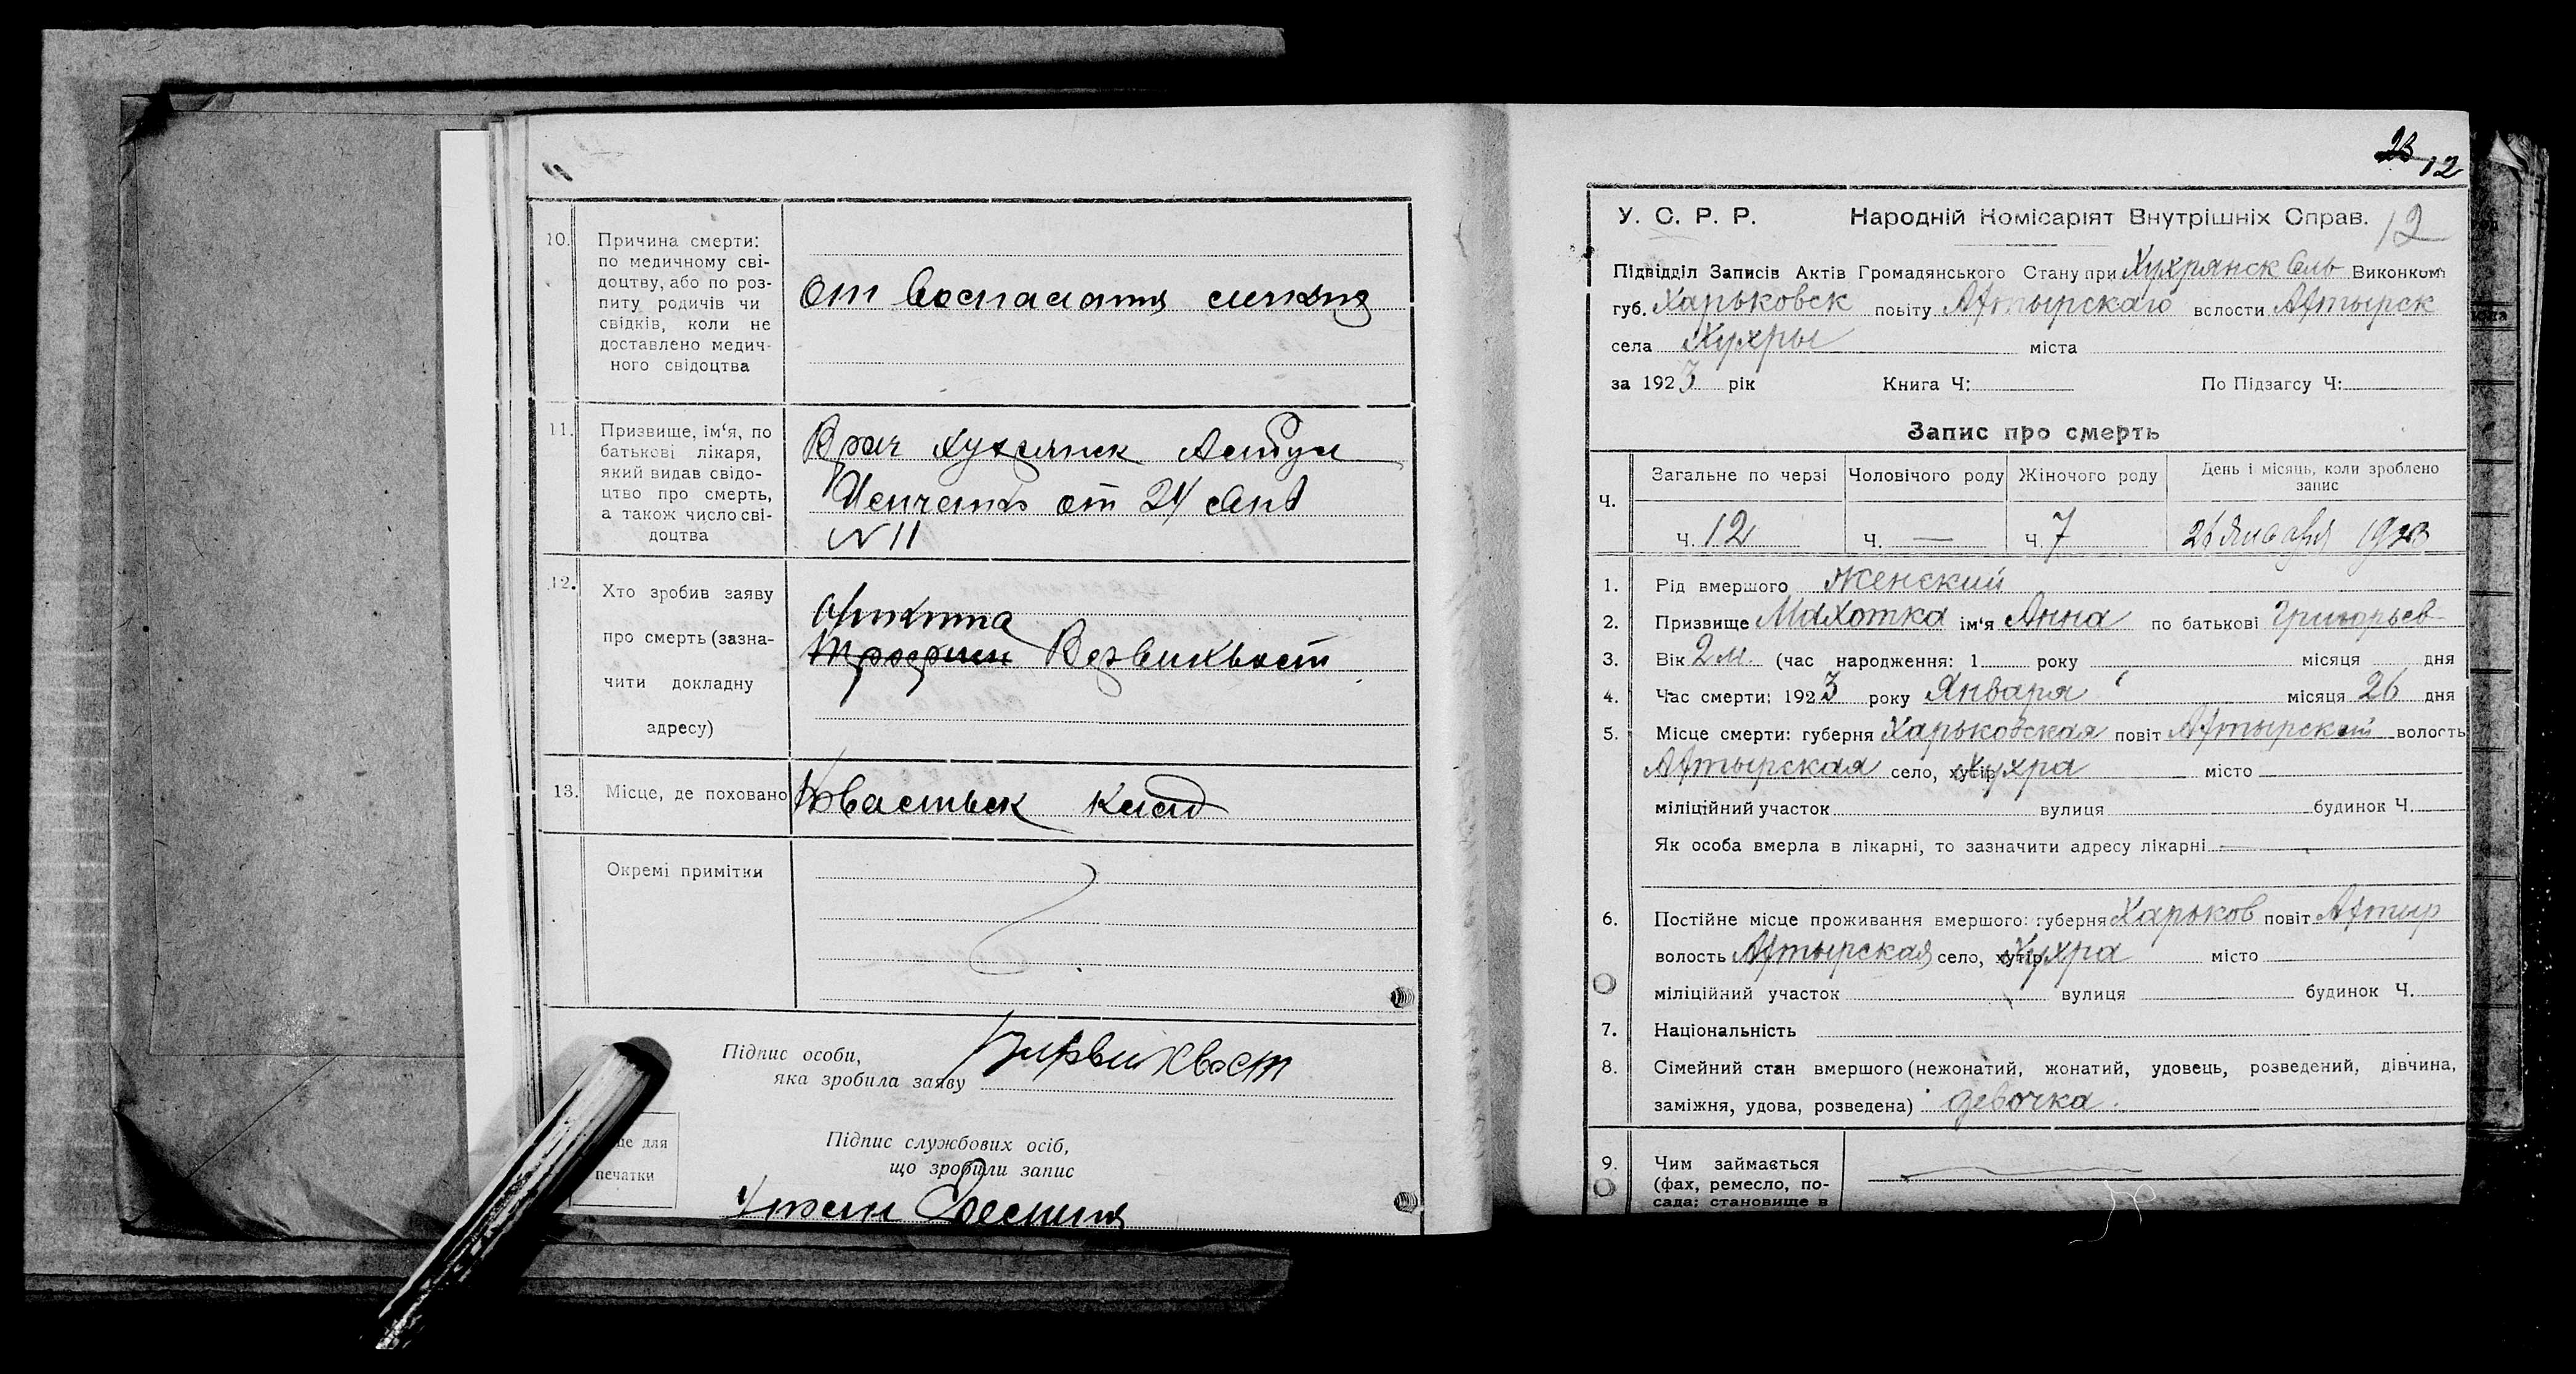 10. Причина смерти:
по медичному сві-
доцтву, або по роз-
питу родичів чи
свідків, коли не
доставлено медич-
ного свідоцтва
От
11. Призвище, ім‘я, по
батькові лікаря,
який видав свідо-
цтво про смерть,
а також число сві-
доцтва
Врач
от 24
N 11
12. Хто зробив заяву
про смерть (зазна-
чити докладну
адресу)
13. Місце, де поховано
клад
Окремі примітки
Підпис особи,
яка зробила заяву
Підпис службових осіб,
що зробили запис
для
печатки
23 12
У. С. Р. Р. Народній Комісаріят Внутрішніх Справ. 12
Підвідділ Записів Актів Громадянського Стану при Хухрянск Сель Виконком
губ. Харьковск повіту Ахтырскаго волости Ахтырск
села Хухры міста
за 1923 рік Книга Ч: По Підзагсу Ч:
Запис про смерть
Ч. Загальне по черзі Чоловічого роду Жіночого роду День і місяць, коли зроблено
запис
ч. 12 ч. — ч. 7 26 Января 1923
1. Рід вмершого Женский
2. Призвище Махотка ім‘я Анна по батькові Григорьев
3. Вік 2 м. (час народження: 1 року місяця дня
4. Час смерти: 1923 року Января місяця 26 дня
5. Місце смерти: губерня Харьковская повіт Ахтырский волость
Ахтырская село, хутір Хухра місто
міліційний участок вулиця будинок Ч.
Як особа вмерла в лікарні, то зазначити адресу лікарні
6. Постійне місце проживання вмершого: губерня Харьков повіт Ахтыр
волость Ахтырская село, хутір Хухра місто
міліційний участок вулиця будинок Ч.
7. Національність
8. Сімейний стан вмершого (нежонатий, жонатий, удовець, розведений, дівчина,
заміжня, удова, розведена) девочка.
9. Чим займається
(фах, ремесло, по-
сада; становище в